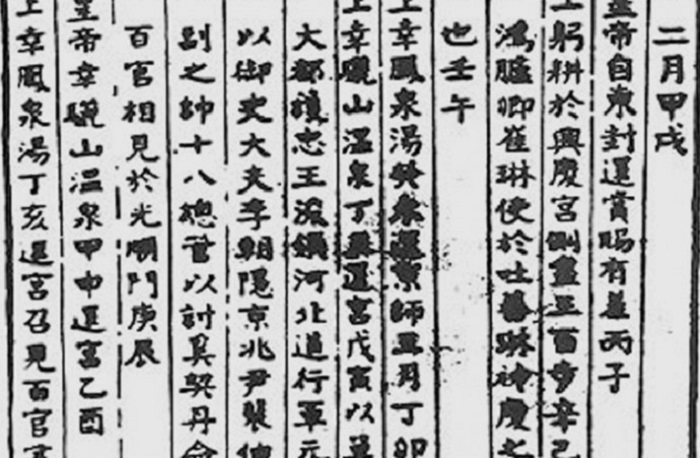 二月甲戌
皇帝自東封還賞賜有差丙子
上躬耕於興慶宮側盡三百步辛巳
鴻臚卿崔琳使於吐蕃琳神慶之
也壬午
上幸鳳泉湯癸未還京師五月丁卯
上幸驪山溫泉丁丑還宮戊寅以單
大都護忠王浚領河北道行軍元
以御史大夫李朝隱京兆尹裴
副之帥十八總管以討奚契丹命
百官相見於光順門庚辰
皇帝幸驪山溫泉甲申還宮乙酉
上幸鳳泉湯丁亥還宮召見百官